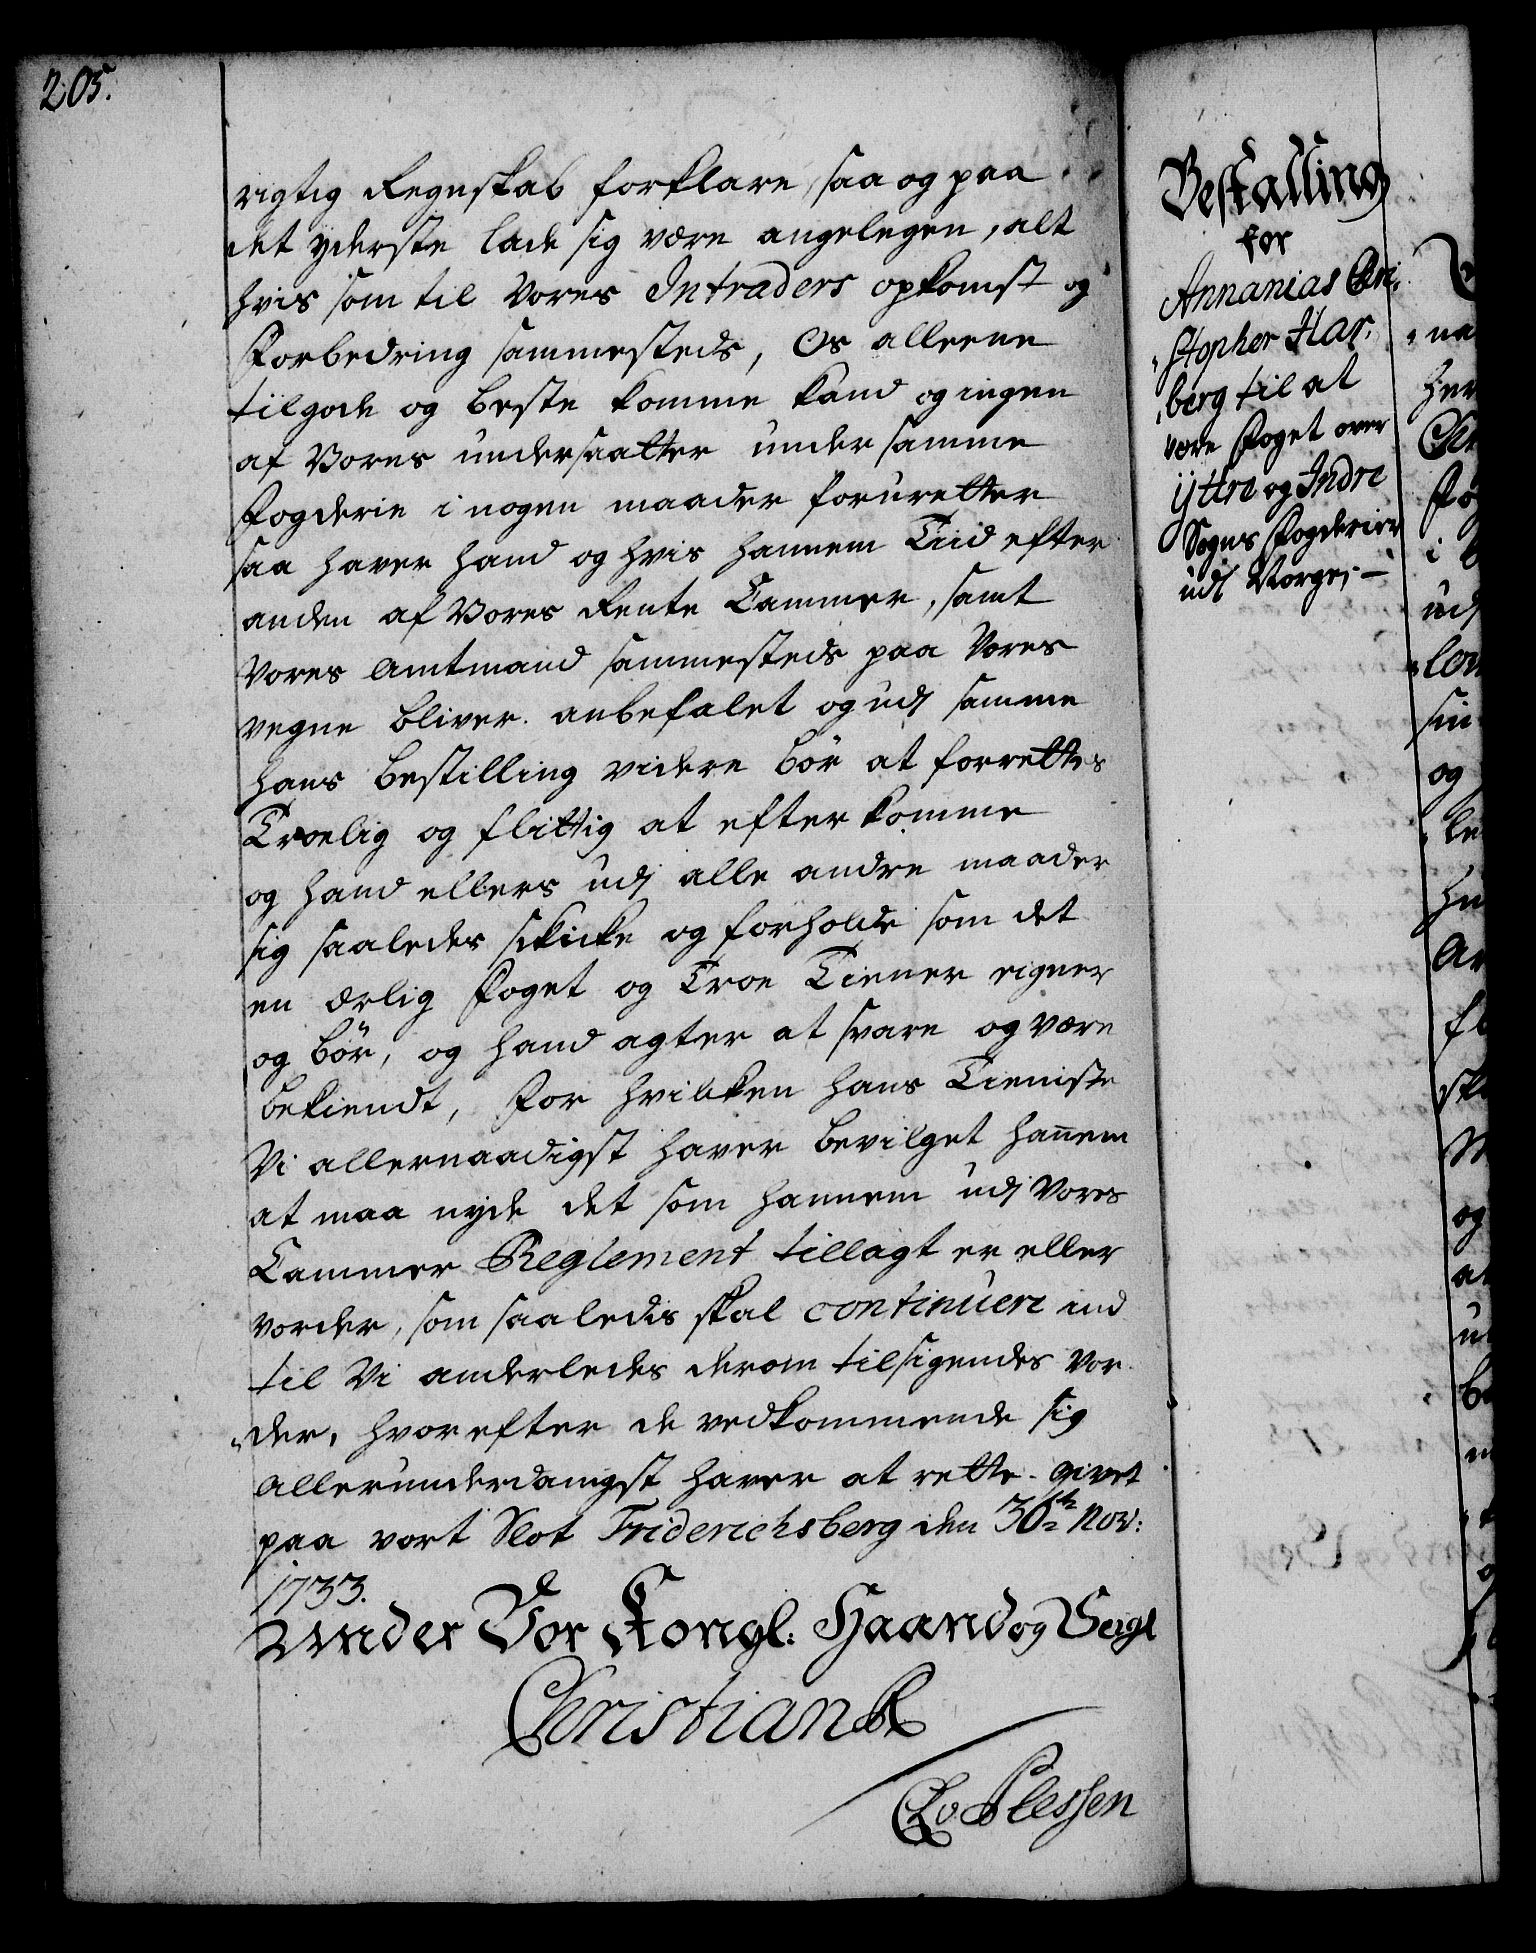 205.
rigtig Regnskab forklare, saa og paa
det yderste lade sig være angelegen, alt
hvis som til Vores Intraders opkomst og
Forbedring sammesteds, Os alleene
til gode og beste komme kand og ingen
af Vores undersaatter under samme
Fogderie i nogen maader foruretter
saa haver hand og hvis hannem Tiid efter
anden af Vores Rente Cammer, samt
Vores Amtmand sammesteds paa Vores
vegne bliver anbefalet og udj samme
hans bestilling videre bör at forrettes
Troelig og flittig at efterkomme
og hand ellers udj alle andre maader
sig saaledes skicke og forholde som det
en ærlig Foget og Troe Tiener eigner
og bör, og hand agter at svare og være
bekiendt, For hvilken hans Tieniste
Vi allernaadigst haver bevilget hannem
at maa nyde det som hannem udj Vores
Cammer Reglement tillagt er eller
vorder, som saaledis skal continuere ind
til Vi anderledes derom tilsigendes vor
„der, hvorefter de vedkommende sig
allerunderdanigst haver at rette. Givet
paa vort Slot Friderichsberg den 30te Nov:
1733.
Under Vor Kongl: Haand og Seigl
Christian R
CAv Plessen
Bestalling
for
Annanias Chri„
„stopher Har„
„berg til at
være Foget over
ijttre og Indre
Sogns Fogderier
udj Norge,-